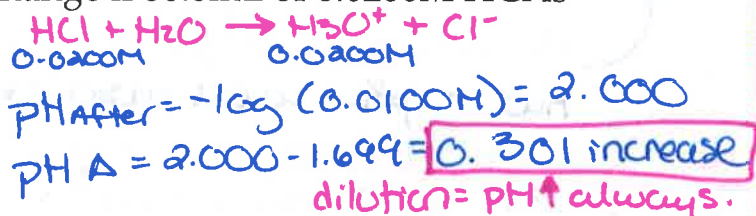 HCl + H2O → H3O⁺ + Cl⁻
0.0200M 0.0200M
pH After = -log (0.0100M) = 2.000
pH Δ = 2.000 - 1.699 = 0.301 increase
dilution = pH ↑ always.